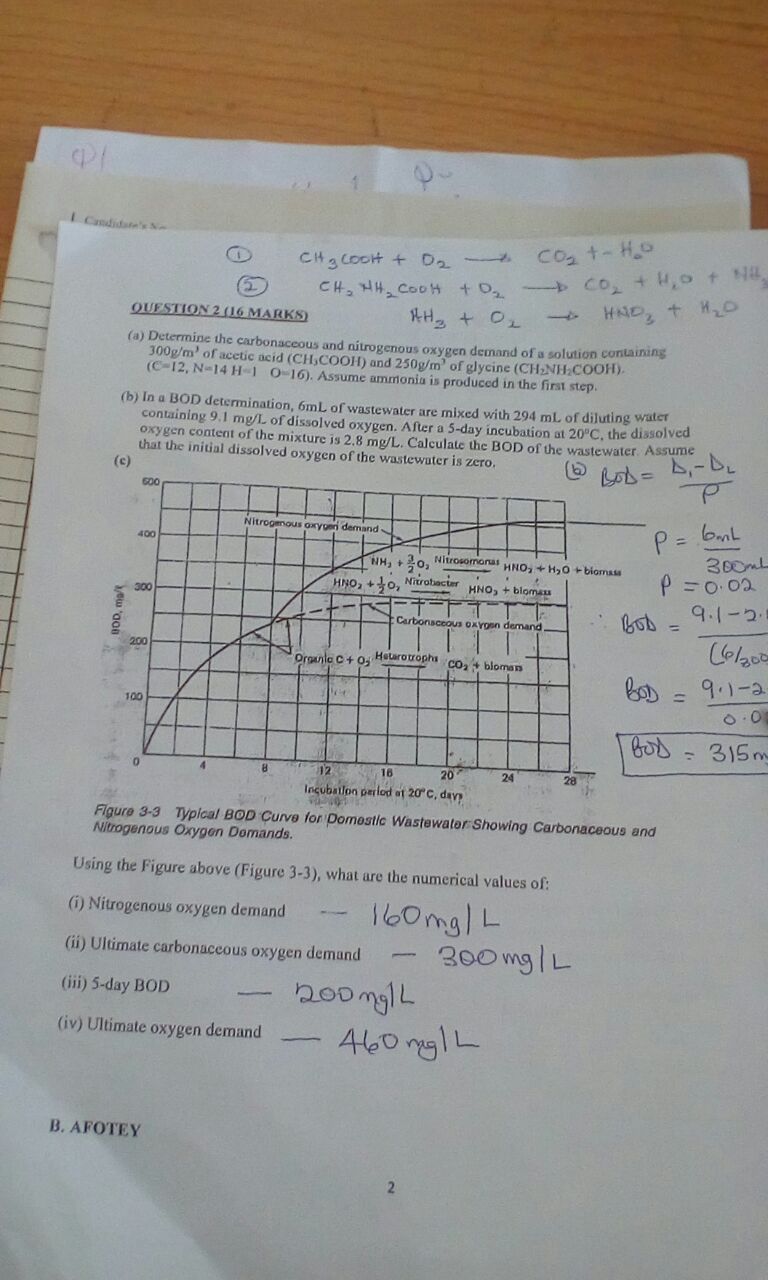 Q1
1. Candidate's No
① CH3COOH + O2 → CO2 + H2O
② CH2NH2COOH + O2 → CO2 + H2O + NH3
NH3 + O2 → HNO3 + H2O
QUESTION 2 (16 MARKS)
(a) Determine the carbonaceous and nitrogenous oxygen demand of a solution containing
300g/m³ of acetic acid (CH3COOH) and 250g/m³ of glycine (CH2NH2COOH).
(C=12, N=14 H=1 O=16). Assume ammonia is produced in the first step.
(b) In a BOD determination, 6mL of wastewater are mixed with 294 mL of diluting water
containing 9.1 mg/L of dissolved oxygen. After a 5-day incubation at 20°C, the dissolved
oxygen content of the mixture is 2.8 mg/L. Calculate the BOD of the wastewater. Assume
that the initial dissolved oxygen of the wastewater is zero.
(b) BOD = D1-D2
P
P = 6mL
300mL
P = 0.02
∴ BOD = 9.1-2.
(6/300
BOD = 9.1-2
0.0
BOD = 315m
(c)
600
400
300
200
100
0
BOD, mg/l
Nitrogenous oxygen demand
NH3 + 3/2 O2 Nitrosomonas HNO2 + H2O + biomass
HNO2 + 1/2 O2 Nitrobacter HNO3 + biomass
Carbonaceous oxygen demand
Organic C + O2 Heterotrophs CO2 + biomass
4 8 12 16 20 24 28
Incubation period at 20°C, days
Figure 3-3 Typical BOD Curve for Domestic Wastewater Showing Carbonaceous and
Nitrogenous Oxygen Demands.
Using the Figure above (Figure 3-3), what are the numerical values of:
(i) Nitrogenous oxygen demand — 160mg/L
(ii) Ultimate carbonaceous oxygen demand — 300mg/L
(iii) 5-day BOD — 200mg/L
(iv) Ultimate oxygen demand — 460mg/L
B. AFOTEY
2